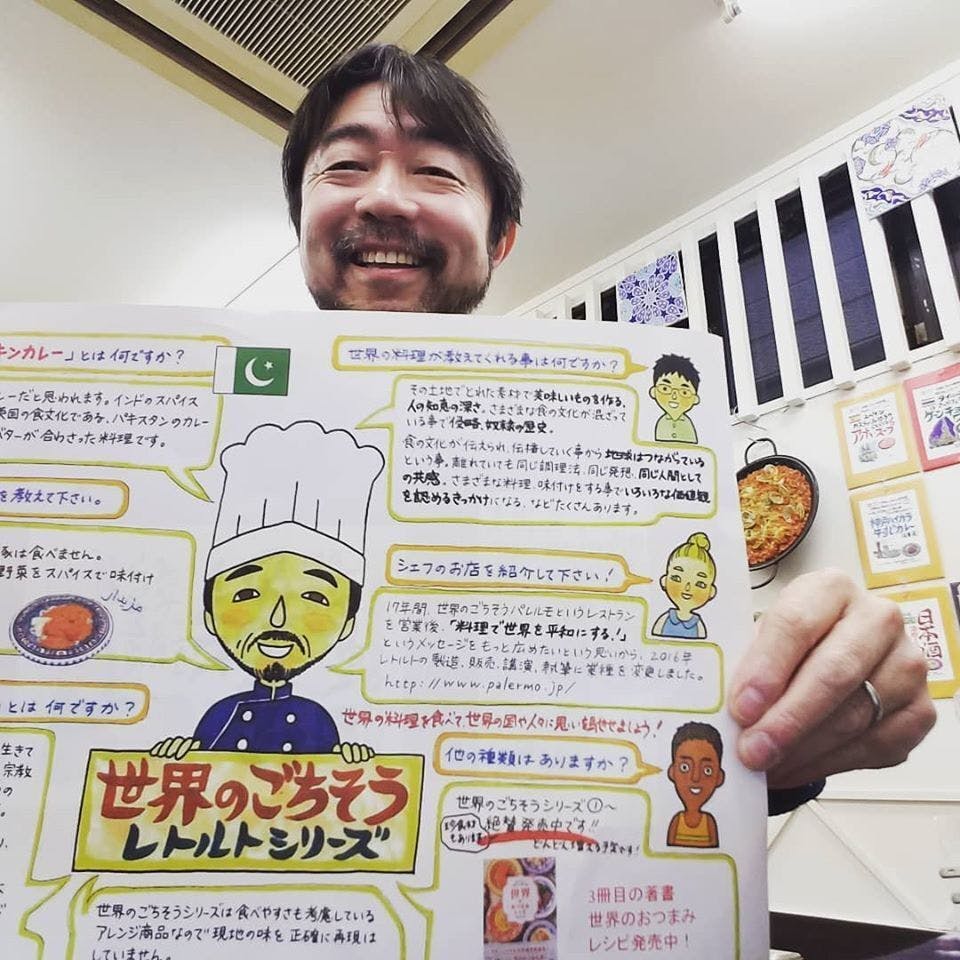 キンカレー」とは何ですか？
レーだと思われます。インドのスパイス
英国の食文化である、パキスタンのカレー
バターが合わさった料理です。
を教えて下さい。
豚は食べません。
野菜をスパイスで味付け
とは何ですか？
生きて
宗教
世界の料理が教えてくれる事は何ですか？
その土地でとれた素材で美味しいものを作る、
人の知恵の深さ。さまざまな食の文化が混ざって
いる事で侵略、奴隷の歴史。
食の文化が伝えられ、伝播していく事から地球はつながっている
という事。離れていても同じ調理法、同じ発想、同じ人間として
の共感。さまざまな料理、味付けをする事でいろいろな価値観
を認めるきっかけになる、などたくさんあります。
シェフのお店を紹介して下さい！
17年間、世界のごちそうパレルモというレストラン
を営業後、「料理で世界を平和にする！」
というメッセージをもっと広めたいという思いから、2016年
レトルトの製造、販売、講演、執筆に業種を変更しました。
http://www.palermo.jp/
世界の料理を食べて、世界の国や人々に思いを馳せましょう！
他の種類はありますか？
世界のごちそうシリーズ①〜
絶賛発売中です!!
どんどん増える予定です！
世界のごちそう
レトルトシリーズ
世界のごちそうシリーズは食べやすさも考慮している
アレンジ商品なので現地の味を正確に再現は
していません。
世界
3冊目の著書
世界のおつまみ
レシピ発売中！